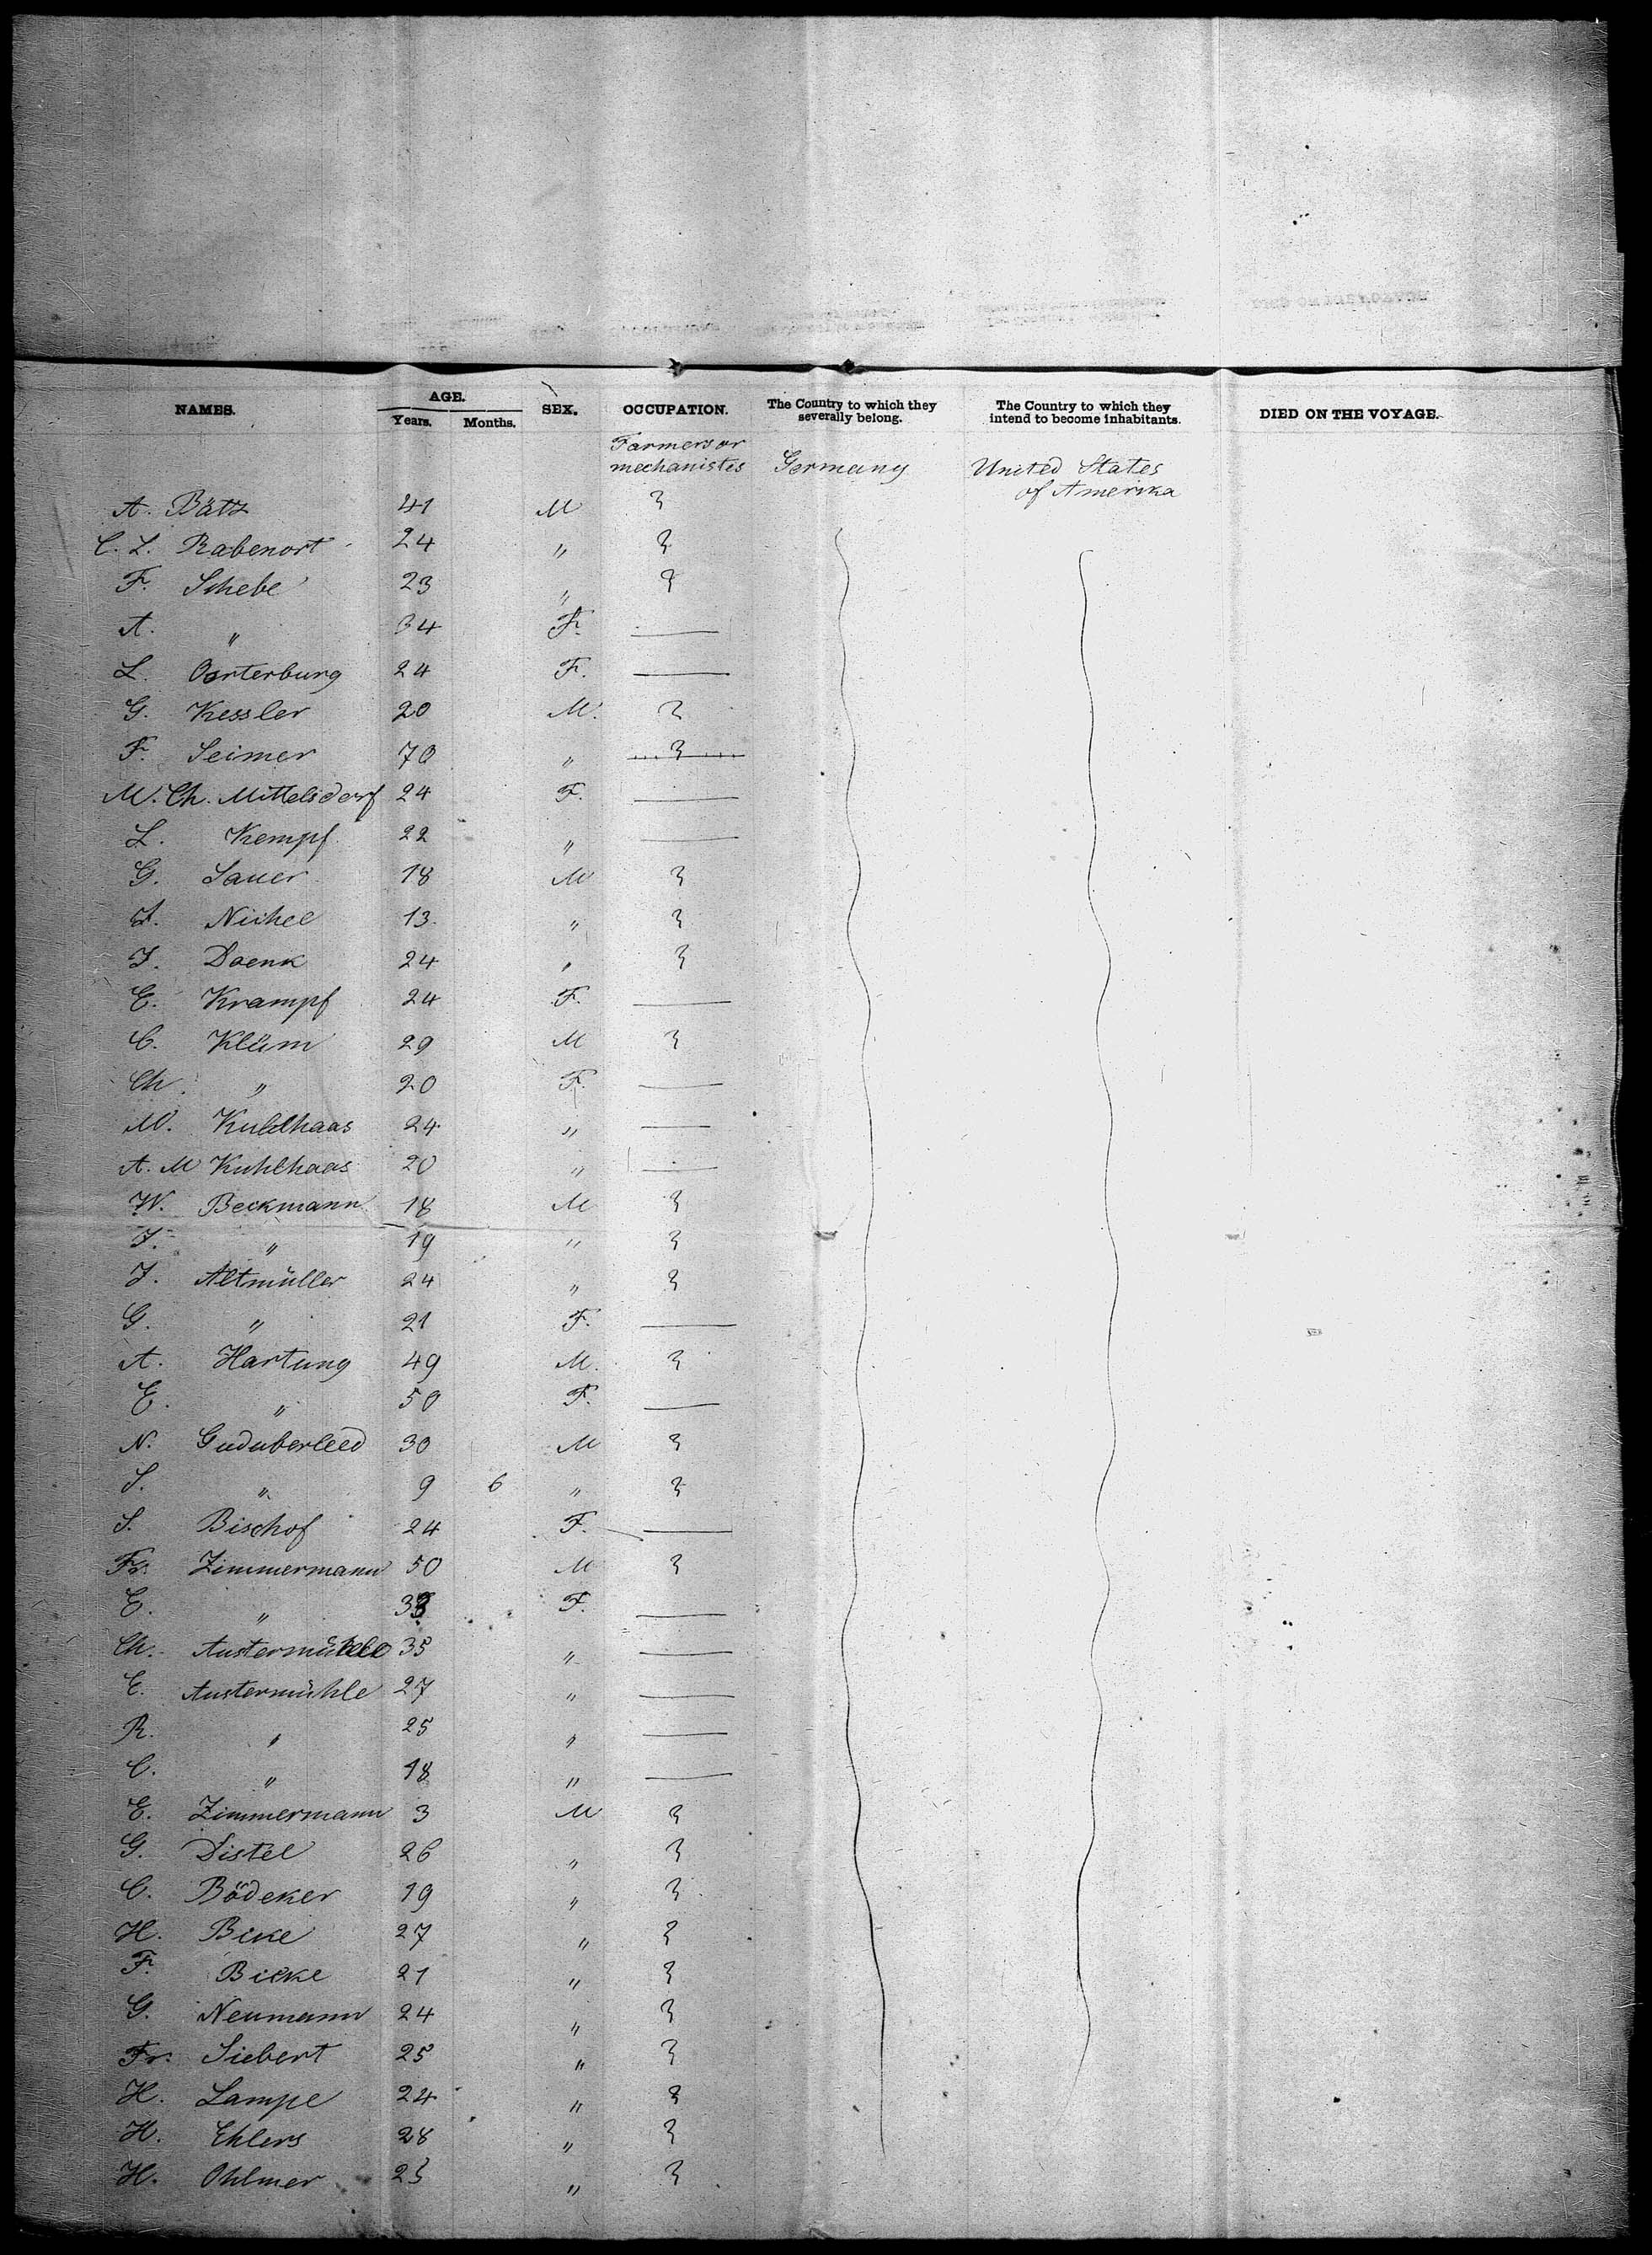 NAMES. AGE. SEX. OCCUPATION. The Country to which they severally belong. The Country to which they intend to become inhabitants. DIED ON THE VOYAGE.
Years. Months.
Farmers or mechanistes Germany United States of Amerika
A. Bätz 41 M
C. L. Rabenort 24 "
F. Schebe 23 "
A. " 34 F. —
L. Osterburg 24 F. —
G. Kessler 20 M.
F. Seimer 70 "
M. Ch. Mittelsdorf 24 F. —
L. Kempf 22 " —
G. Sauer 18 M
A. Nichel 13 "
J. Doenk 24 "
E. Krampf 24 F. —
C. Klüm 29 M
Ch. " 20 F. —
M. Kuhlhaas 24 " —
A. M Kuhlhaas 20 " —
W. Beckmann 18 M
J. " 19 "
J. Altmüller 24 "
G. " 21 F. —
A. Hartung 49 M.
E. " 50 F. —
N. Guduberleed 30 M
S. " 9 6 "
S. Bischof 24 F. —
Fr. Zimmermann 50 M
E. " 33 F. —
Ch. Austermühle 35 " —
E. Austermühle 27 " —
R. " 25 " —
C. " 18 " —
E. Zimmermann 3 M
G. Distel 26 "
C. Bödeker 19 "
H. Bike 27 "
F. Bicke 21 "
G. Neumann 24 "
Fr. Siebert 25 "
H. Lampe 24 "
H. Ehlers 28 "
H. Ohlmer 23 "